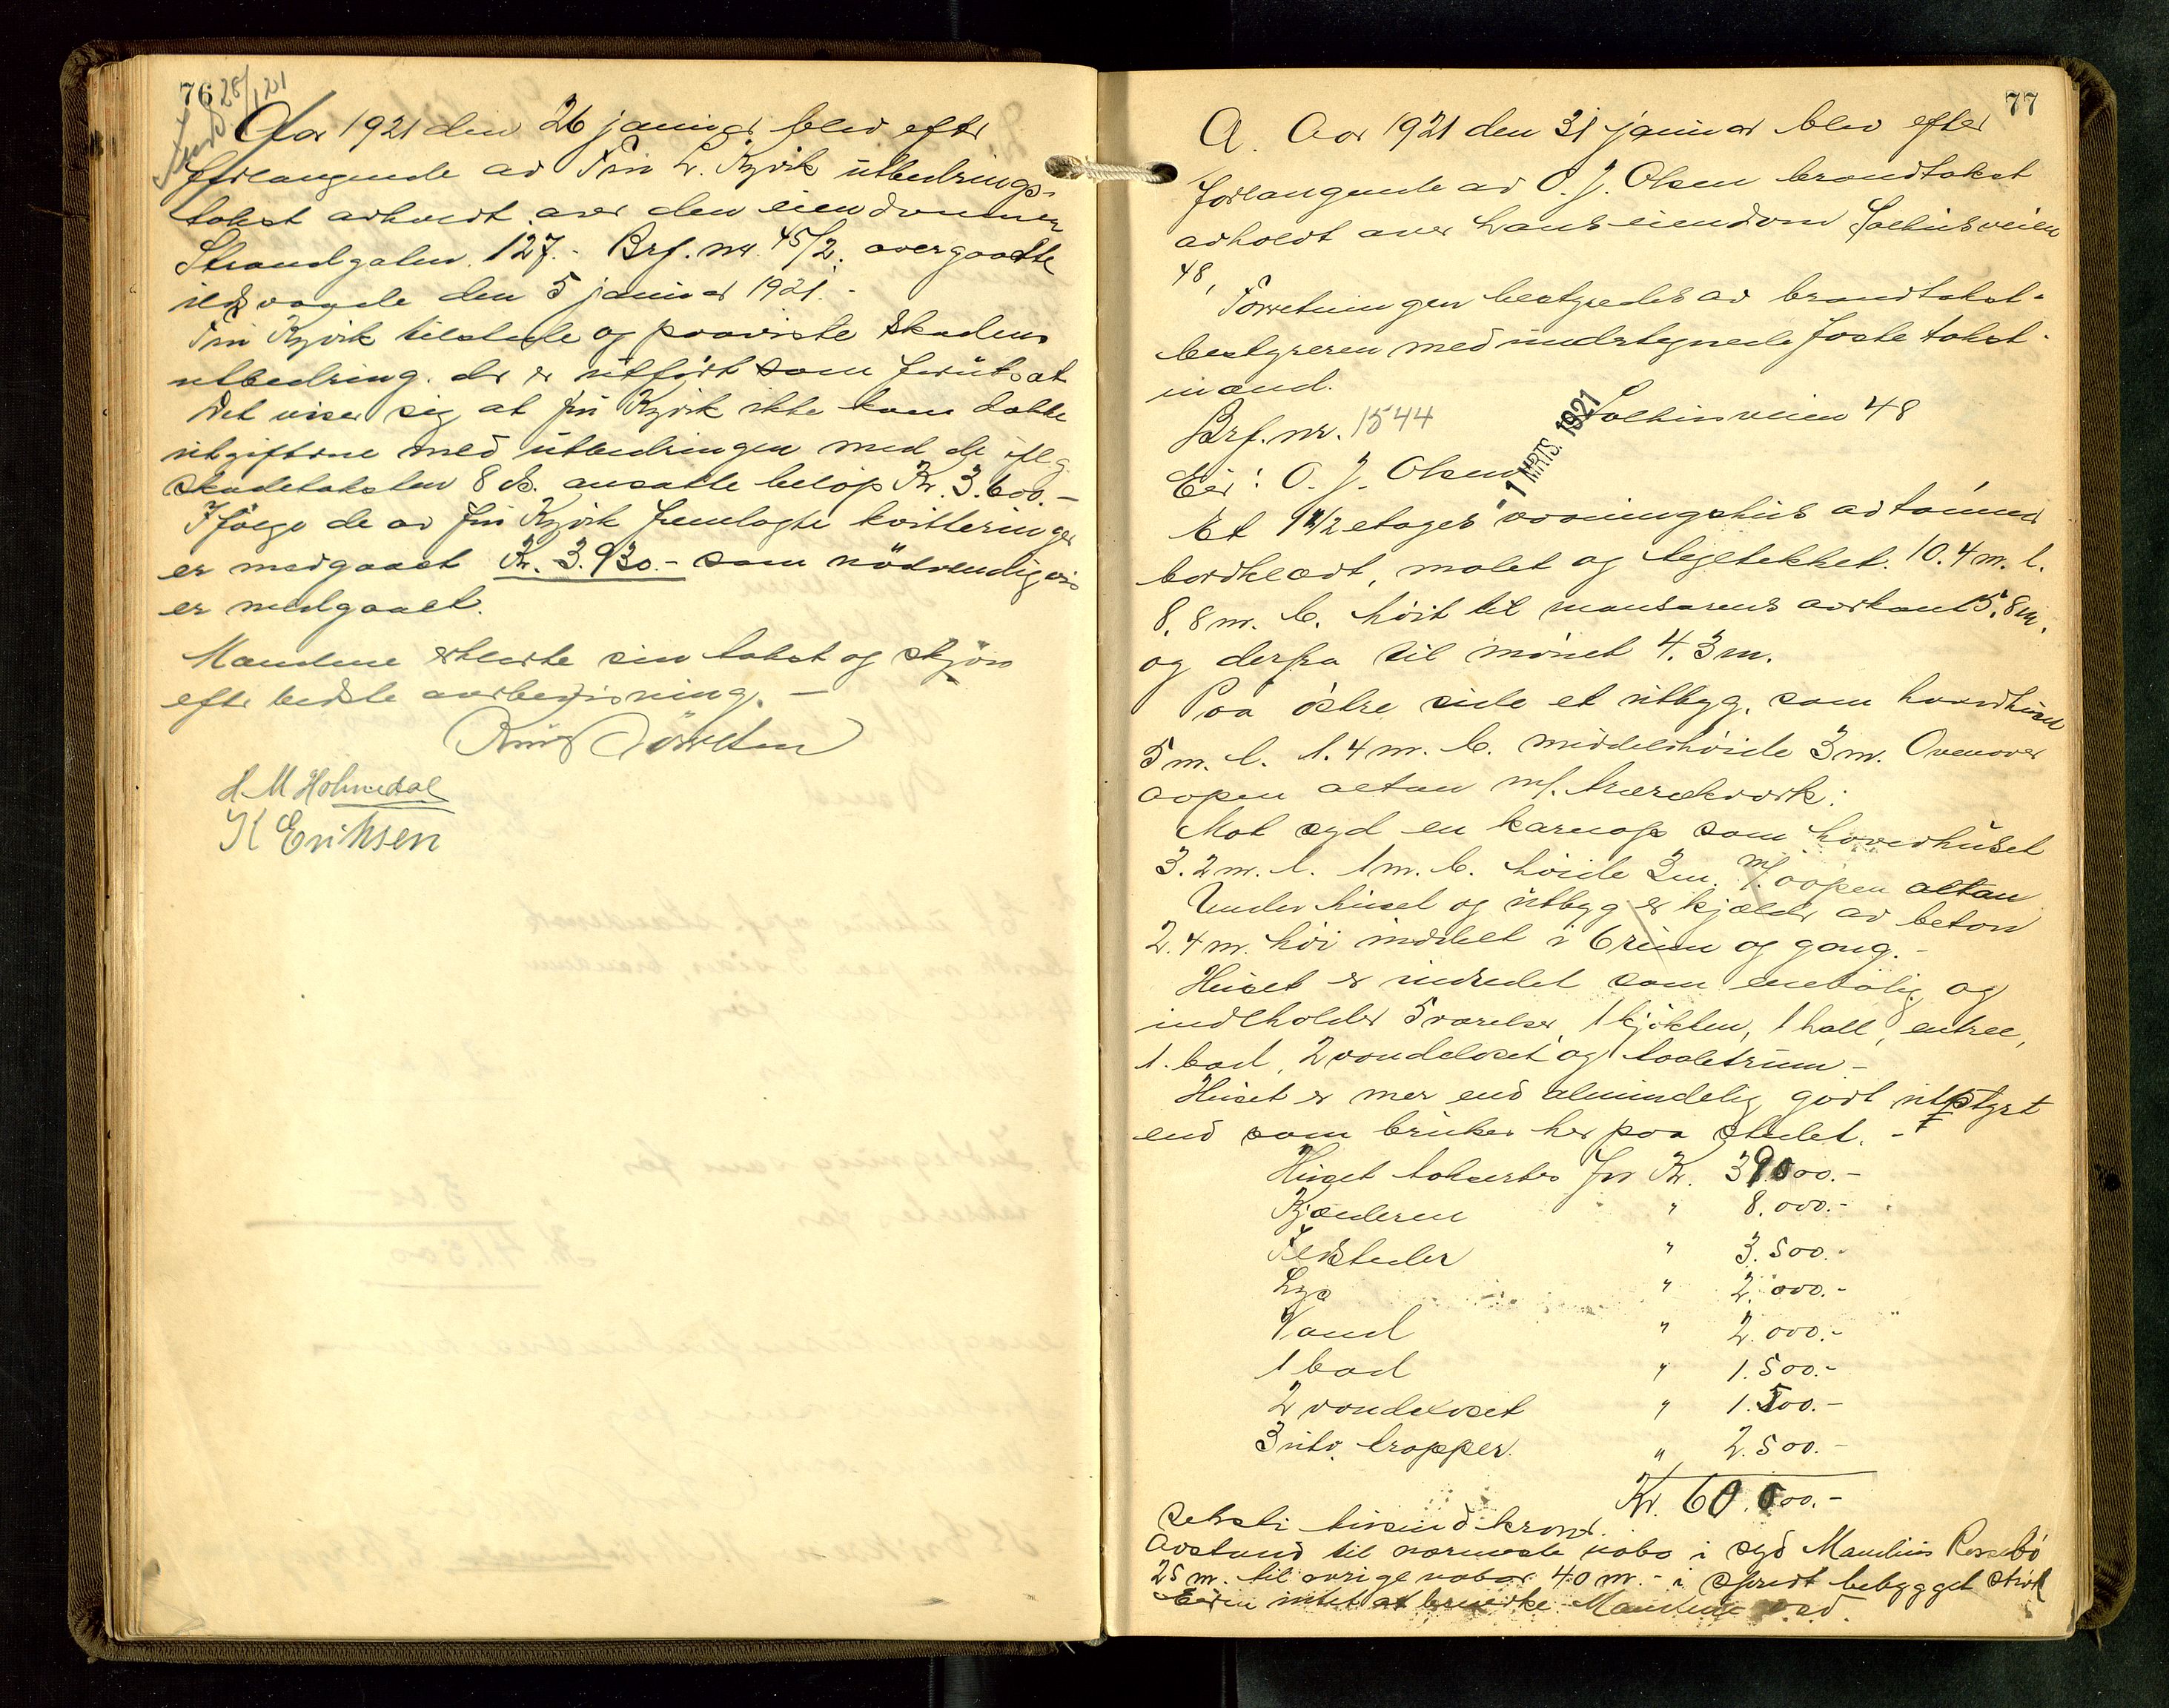 76 28/1 21
Aar 1921 den 26 januar blev efter
forlangende av Fru L. Kyvik utbedrings-
takst avholdt over den eiendommen
Strandgaten 127.- Brf. nr. 45/2. overgaatte
ildsvaade den 5 januar 1921.-
Fru Kyvik tilstede og paaviste skadens
utbedring. der er utført som forutsat
Det viser sig at fru Kyvik ikke kan dække
utgifterne med utbedringen med de iflg
skadetaksten 8 ds. ansatte beløp Kr. 3.600.-
Ifølge de av fru Kyvik fremlagte kvitteringer
er medgaaet Kr. 3.930.- som nödvendigvis
er medgaaet.
Mændene erklærte sin takst og skjøn
efter bedste overbevisning.-
H M Holmedal
K Eriksen
77
A. Aar 1921 den 31 januar blev efter
forlangende av O. J. Olsen brandtakst
avholdt over hans eiendom Solhusveien
48,
Forretningen bestyredes av brandtakst-
bestyreren med undertegnede faste takst-
mænd.
Brf. nr. 1544 Solhusveien 48
1 MRTS. 1921
Eier: O. J. Olsen
Et 1 1/2 etages vaaningshus av tømmer
bordklædt, malet og tegltekket. 10.4 m. l.
8.8 m. b. høit til mansarens avkant 5.8 m.
og derfra til mønet 4.3 m.
Paa østre side et utbyg. som hovedhuset
5 m. l. 1.4 m. b. middelhøide 3 m. Ovenover
aapen altan m/. trærekverk.
Mot syd en karnap som hovedhuset
3.2 m. l. 1 m. b. høide 3 m. m/. aapen altan
Under huset og utbyg er kjælder av beton
2.4 m. høi inddelt i 6 rum og gang.-
Huset er indredet som enebolig og
indholder 5 værelser, 1 kjøkken, 1 hall, entree,
1. bad, 2 vandcloset og 1 toaletrum -
Huset er mer end almindelig godt utstyrt
end som brukes her paa stedet.-
Huset taksertes for Kr. 39000.-
Kjælderen " 8.000.-
Ildsteder " 3.500.-
Lys " 2.000.-
Vand " 2.000.-
1 bad " 1.500.-
2 vandcloset " 1.500.-
3 utv. trapper. " 2.500.-
Kr. 60.000.-
Seksti tusind kroner.
Avstand til nærmeste nabo i syd Mandius Rossebø
25 m. til øvrige naboer 40 m.- i spredt bebygget strøk
Eieren intet at bemerke. Mændene